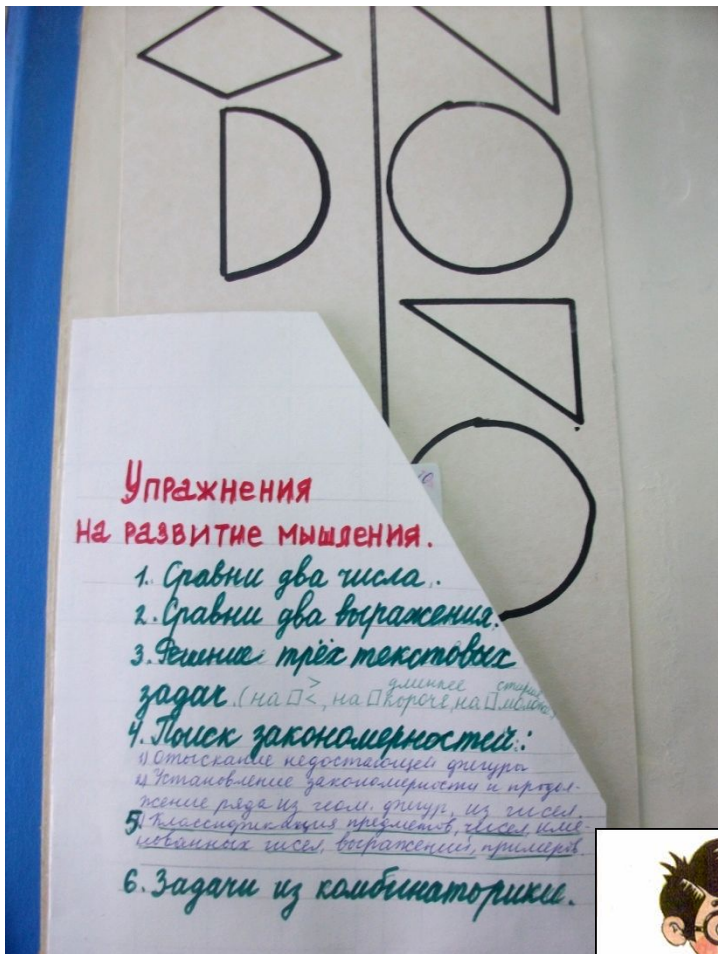 Упражнения
на развитие мышления.
1. Сравни два числа.
2. Сравни два выражения.
3. Решение трёх текстовых
длиннее старше
задач (на □ >, <, на □ короче, на □ моложе)
4. Поиск закономерностей:
1) Отыскание недостающей фигуры
2) Установление закономерности и продол-
жение ряда из геом. фигур, из чисел.
5. Классификация предметов, чисел, име-
нованных чисел, выражений, примеров.
6. Задачи из комбинаторики.